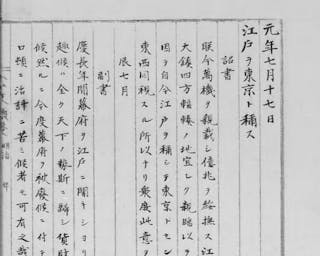 元年七月十七日
江戸ヲ東京ト稱ス
詔書
朕今萬機ヲ親裁シ億兆ヲ綏撫ス江
大鎮四方輻輳ノ地宜シク親臨以テ
因テ自今江戸ヲ稱シテ東京トセン
東西同視スル所以ナリ衆庶此意ヲ
辰七月
副書
慶長年間幕府ヲ江戸ニ開キショリ
趣候ハ全ク天下ノ勢斯ニ歸シ貨財
候然ルニ今度幕府ヲ被廢候ニ付
口頓ニ活計ニ苦ミ候者モ可有之哉